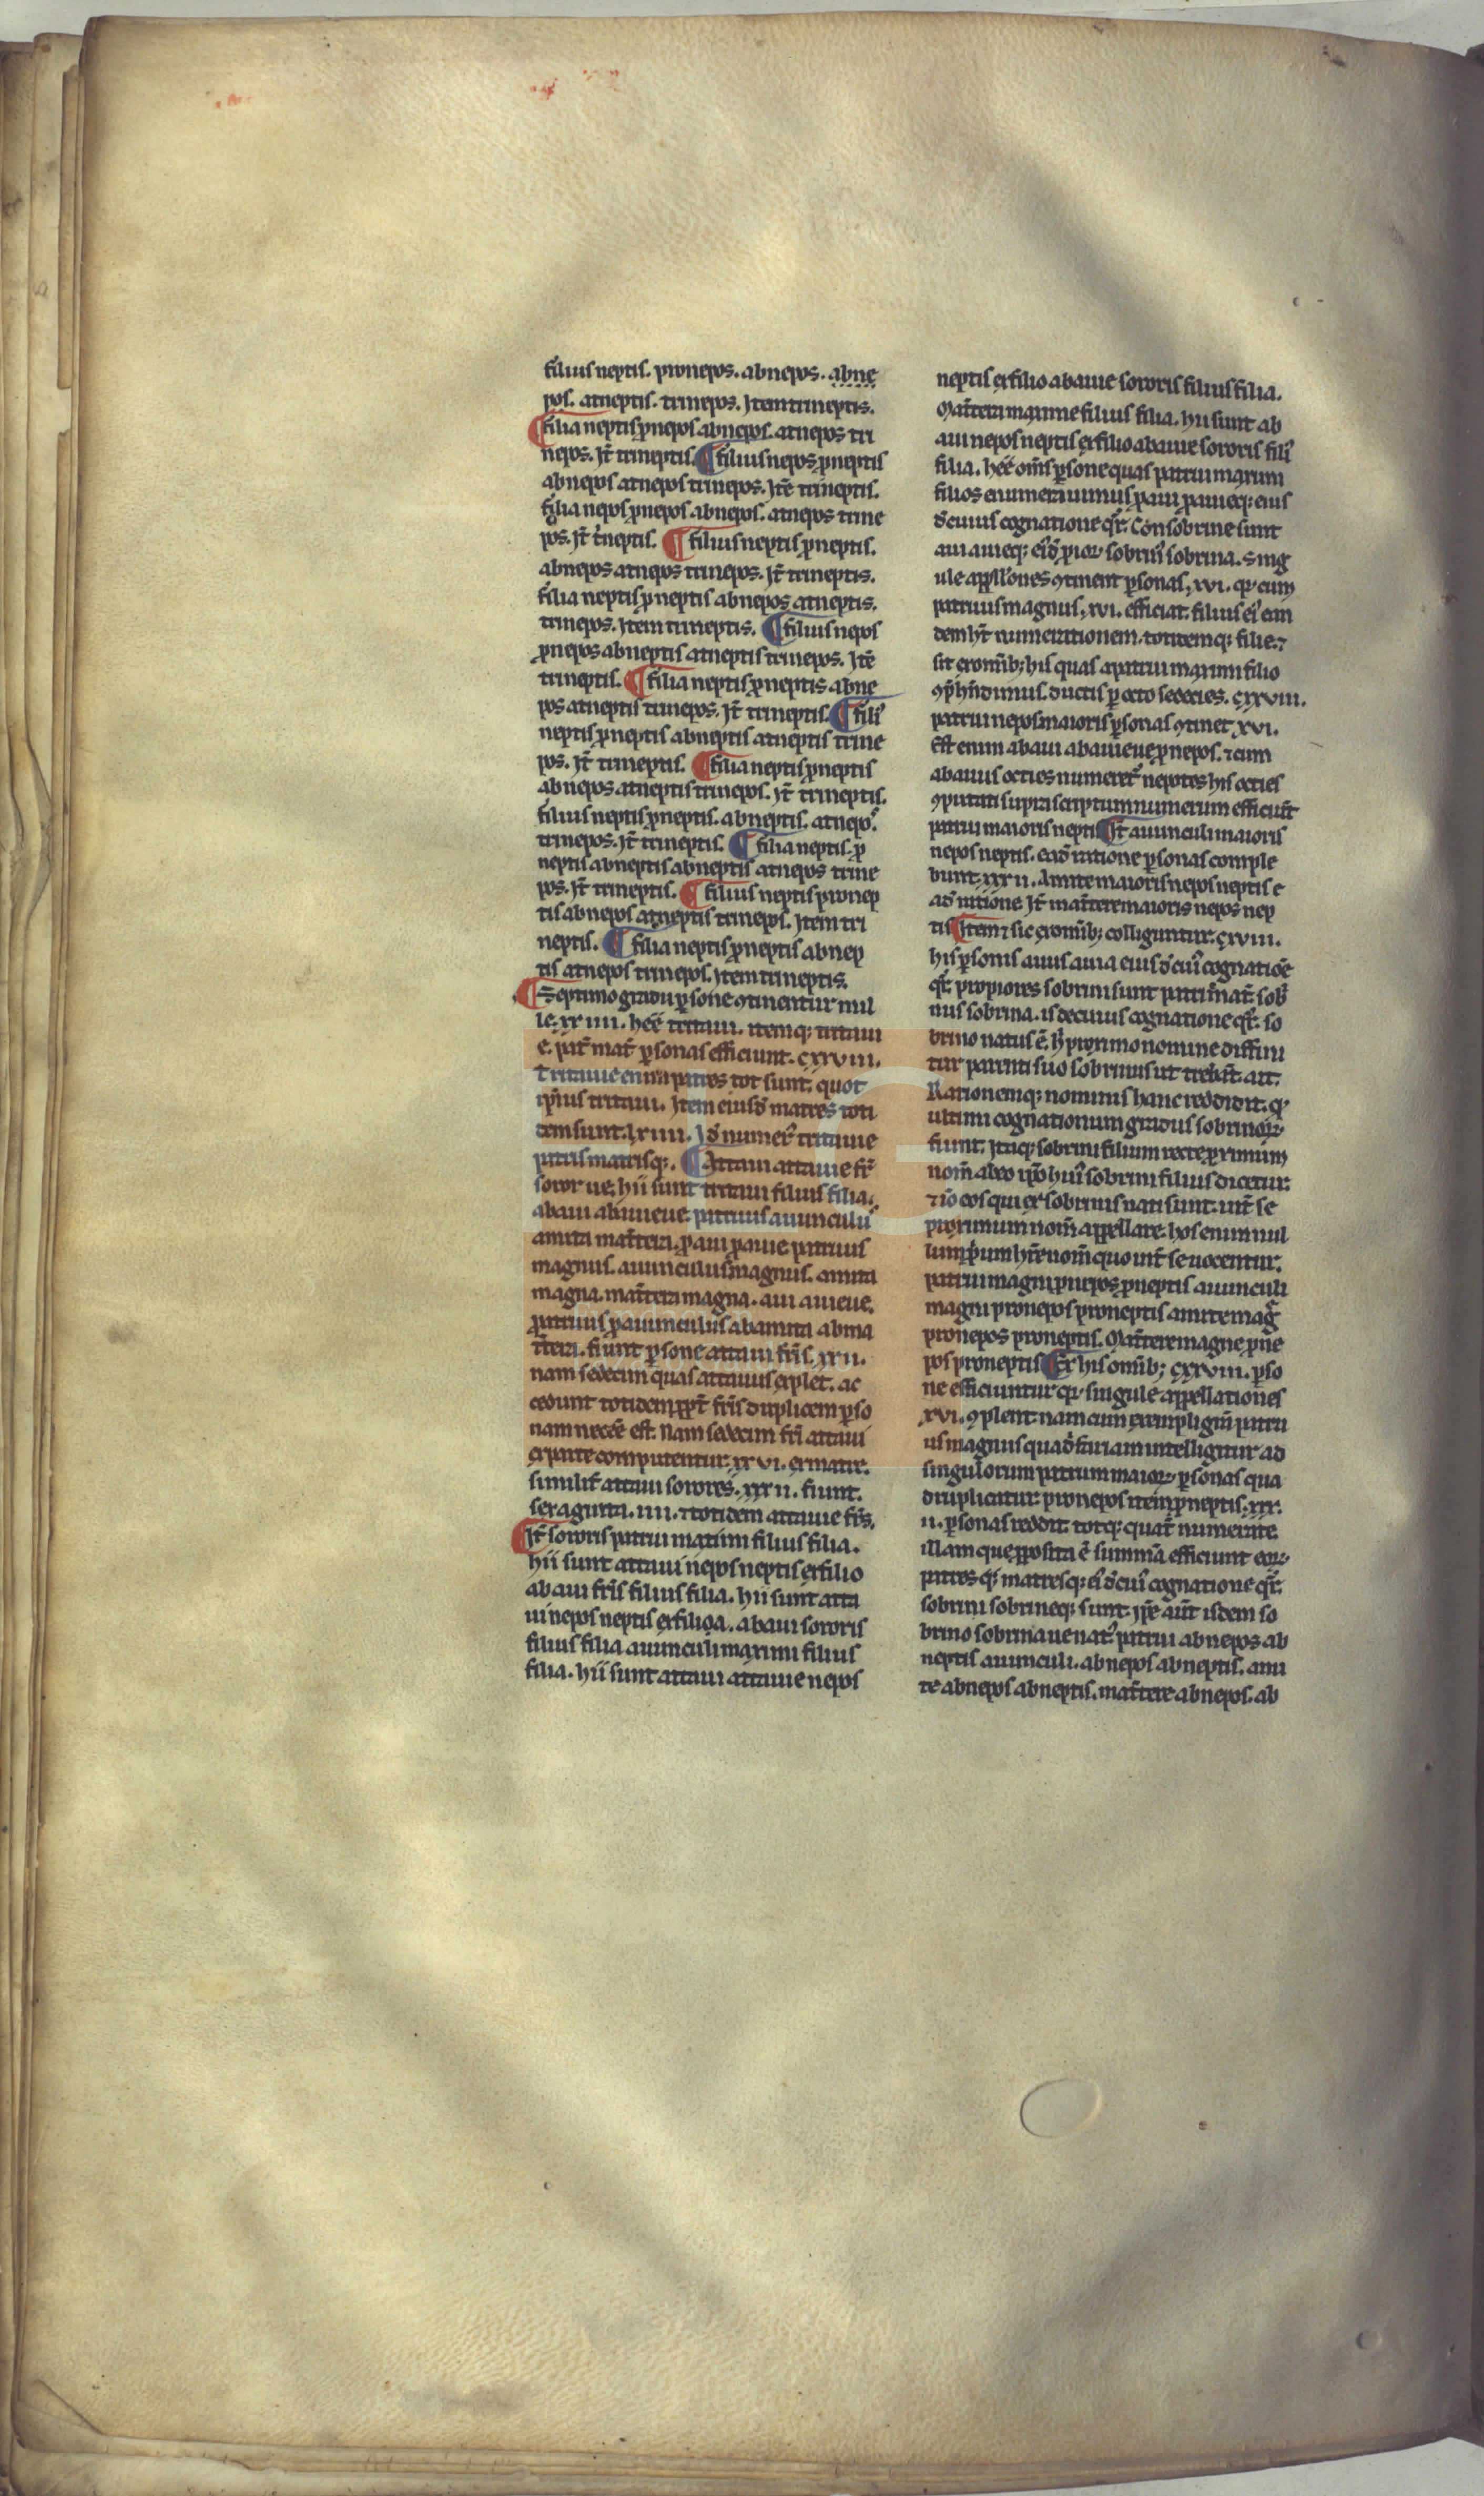 filius neptis. pronepos. abnepos. abne
pos. atneptis. trinepos. Item trineptis.
¶ filia neptis ꝓnepos abnepos. atnepos tri
nepos. It̃ trineptis. ¶ filius nepos ꝓneptis
abnepos atnepos trinepos. Itẽ trineptis.
filia nepos ꝓnepos abnepos. atnepos trine
pos. It̃ t͛neptis. ¶ filius neptis ꝓneptis.
abnepos atnepos trinepos. It̃ trineptis.
filia neptis ꝓneptis abnepos atneptis.
trinepos. Item trineptis. ¶ filius nepos
ꝓnepos abneptis atneptis trinepos. Itẽ
trineptis. ¶ filia neptis ꝓneptis abne
pos atneptis trinepos. It̃ trineptis. ¶ fili᷒
neptis ꝓneptis abneptis atneptis trine
pos. It̃ trineptis. ¶ filia neptis ꝓneptis
abnepos atneptis trinepos. It̃ trineptis.
filius neptis ꝓneptis. abneptis. atnepo᷒.
trinepos. It̃ trineptis. ¶ filia neptis. ꝓ
neptis abneptis abneptis atnepos trine
pos. It̃ trineptis. ¶ filius neptis pronep
tis abnepos atneptis trinepos. Item tri
neptis. ¶ filia neptis ꝓneptis abnep
tis atnepos trinepos. Item trineptis.
¶ Septimo gradu ꝑsone ꝯtinentur mil
le. xx iiii. heẽ tritaui. itemq; tritaui
e. pat̃ mat̃ ꝑsonas efficiunt. cxxviii.
Tritaue enim patres tot sunt. quot
ip̃ius tritaui. Item eiusd̃ matres toti
dem sunt. lxiiii. Id̃ numer᷒ tritaue
patris matrisq;. ¶ Attaui attaue fr̃
soror ue. hii sunt tritaui filius filia.
abaui abauieue. patruus auunculu᷒
amita mat̃tera. ꝓaui ꝓauie patruus
magnus. auunculus magnus. amita
magna. mat̃tera magna. aui auieue.
ꝓpatruus ꝓauunculus abamita abma
t̃tera. fiunt ꝑsone attaui fr̃is. xxii.
nam sedecim quas attauus explet. ac
cedunt totidem ꝓpt̃ fr̃is duplicem ꝑso
nam necẽe est. Nam sedecim fr̃i attaui
ex parte computentur. xx vi. ex matre.
similit̃ attaui sorores. xxx ii. fiunt.
sexaginta. iiii. ⁊ totidem attaue fr̃s.
¶ It̃ sororis patrui maximi filius filia.
hii sunt attaui nepos neptis ex filio
abaui fr̃is filius filia. hii sunt atta
ui nepos neptis ex filioa. abaui sororis
filius filia auunculi maximi filius
filia. hii sunt attaui attauie nepos
neptis ex filio abauie sororis filius filia.
Mat̃tera maxime filius filia. hii sunt ab
aui nepos neptis ex filio abauie sororis fili᷒
filia. heẽ om̃s ꝑsone quas patrui maximi
filios enumerauimus ꝓaui ꝓauieq; eius
d̃ cuius cognatione qr̃. Consobrine sunt
aui auieq; ei᷒d̃ ꝓior sobrin᷒ sobrina. Sing
ule appll̃ones ꝯtinent ꝑsonas, xvi. qr cum
patruus magnus, xvi. efficiat. filius ei᷒ ean
dem hʒ numerationem. totidemq; filie. ⁊
sit ex omĩb; his quas a patrui maximi filio
ꝯp̃hẽndimus. ductis ꝑ octo sedecies. cxxviii.
patrui nepos maioris ꝑsonas ꝯtinet. xvi.
Est enim abaui abauieue ꝓnepos. ⁊ cum
abauus octies numeret᷑ nepotes his octies
ꝯputati supra scriptum numerum efficiũt
patrui maioris neptis ¶ It̃ auunculi maioris
nepos neptis. ead̃ ratione ꝑsonas comple
bunt. xxx ii. Amite maioris nepos neptis e
ad̃ ratione It̃ mat̃tere maioris nepos nep
tis ¶ Item ⁊ sic ex omĩb; colliguntur. cxviii.
his ꝑsonis auus auia eius d̃ cui᷒ cognatiõe
qr̃. propiores sobrini sunt patrui nat᷒. sob᷑
nus sobrina. is de cuius cognatione qr̃. so
brino natus ẽ. hʒ proximo nomine diffini
tur parenti suo sobrinus ut trebat̃. ait.
Rationemq; nominis hanc reddidit. q̄
ultimi cognationum gradus sobrinoꝝ
fiunt. Itaq; sobrini filium recte ꝓximum
nom̃ ab eo quo hui᷒ sobrini filius dicetur.
⁊ iõ eos qui ex sobrinis nati sunt. int̃ se
proximum nom̃ appellare. hos enim nul
lum ꝓprium hr̃e nom̃ quo int̃ se uocentur.
patrui magni ꝓnepos ꝓneptis auunculi
magni pronepos proneptis amite mag᷑
pronepos proneptis. Mat̃tere magne ꝓne
pos proneptis ¶ Ex his omĩb; cxxviii. ꝑso
ne efficiuntur qr singule appellationes
xvi. ꝯplent. nam cum exempli grã patru
us magnus quad᷑fariam intelligatur ad
singulorum patrum maioꝝ ꝑsonas qua
druplicatur. pronepos itẽ ꝓneptis. xxx.
ii. ꝑsonas reddit. totq; quat᷑ numerate
illam que ꝓposita ẽ summã efficiunt eoꝝ
patres q᷒ matresq; ei᷒ d̃ cui᷒ cognatione qr̃.
sobrini sobrineq; sunt. Ip̃e aũt isdem so
brino sobrinaue nat᷒. patrui abnepos ab
neptis auunculi. abnepos abneptis. ami
te abnepos abneptis. mat̃tere abnepos. ab